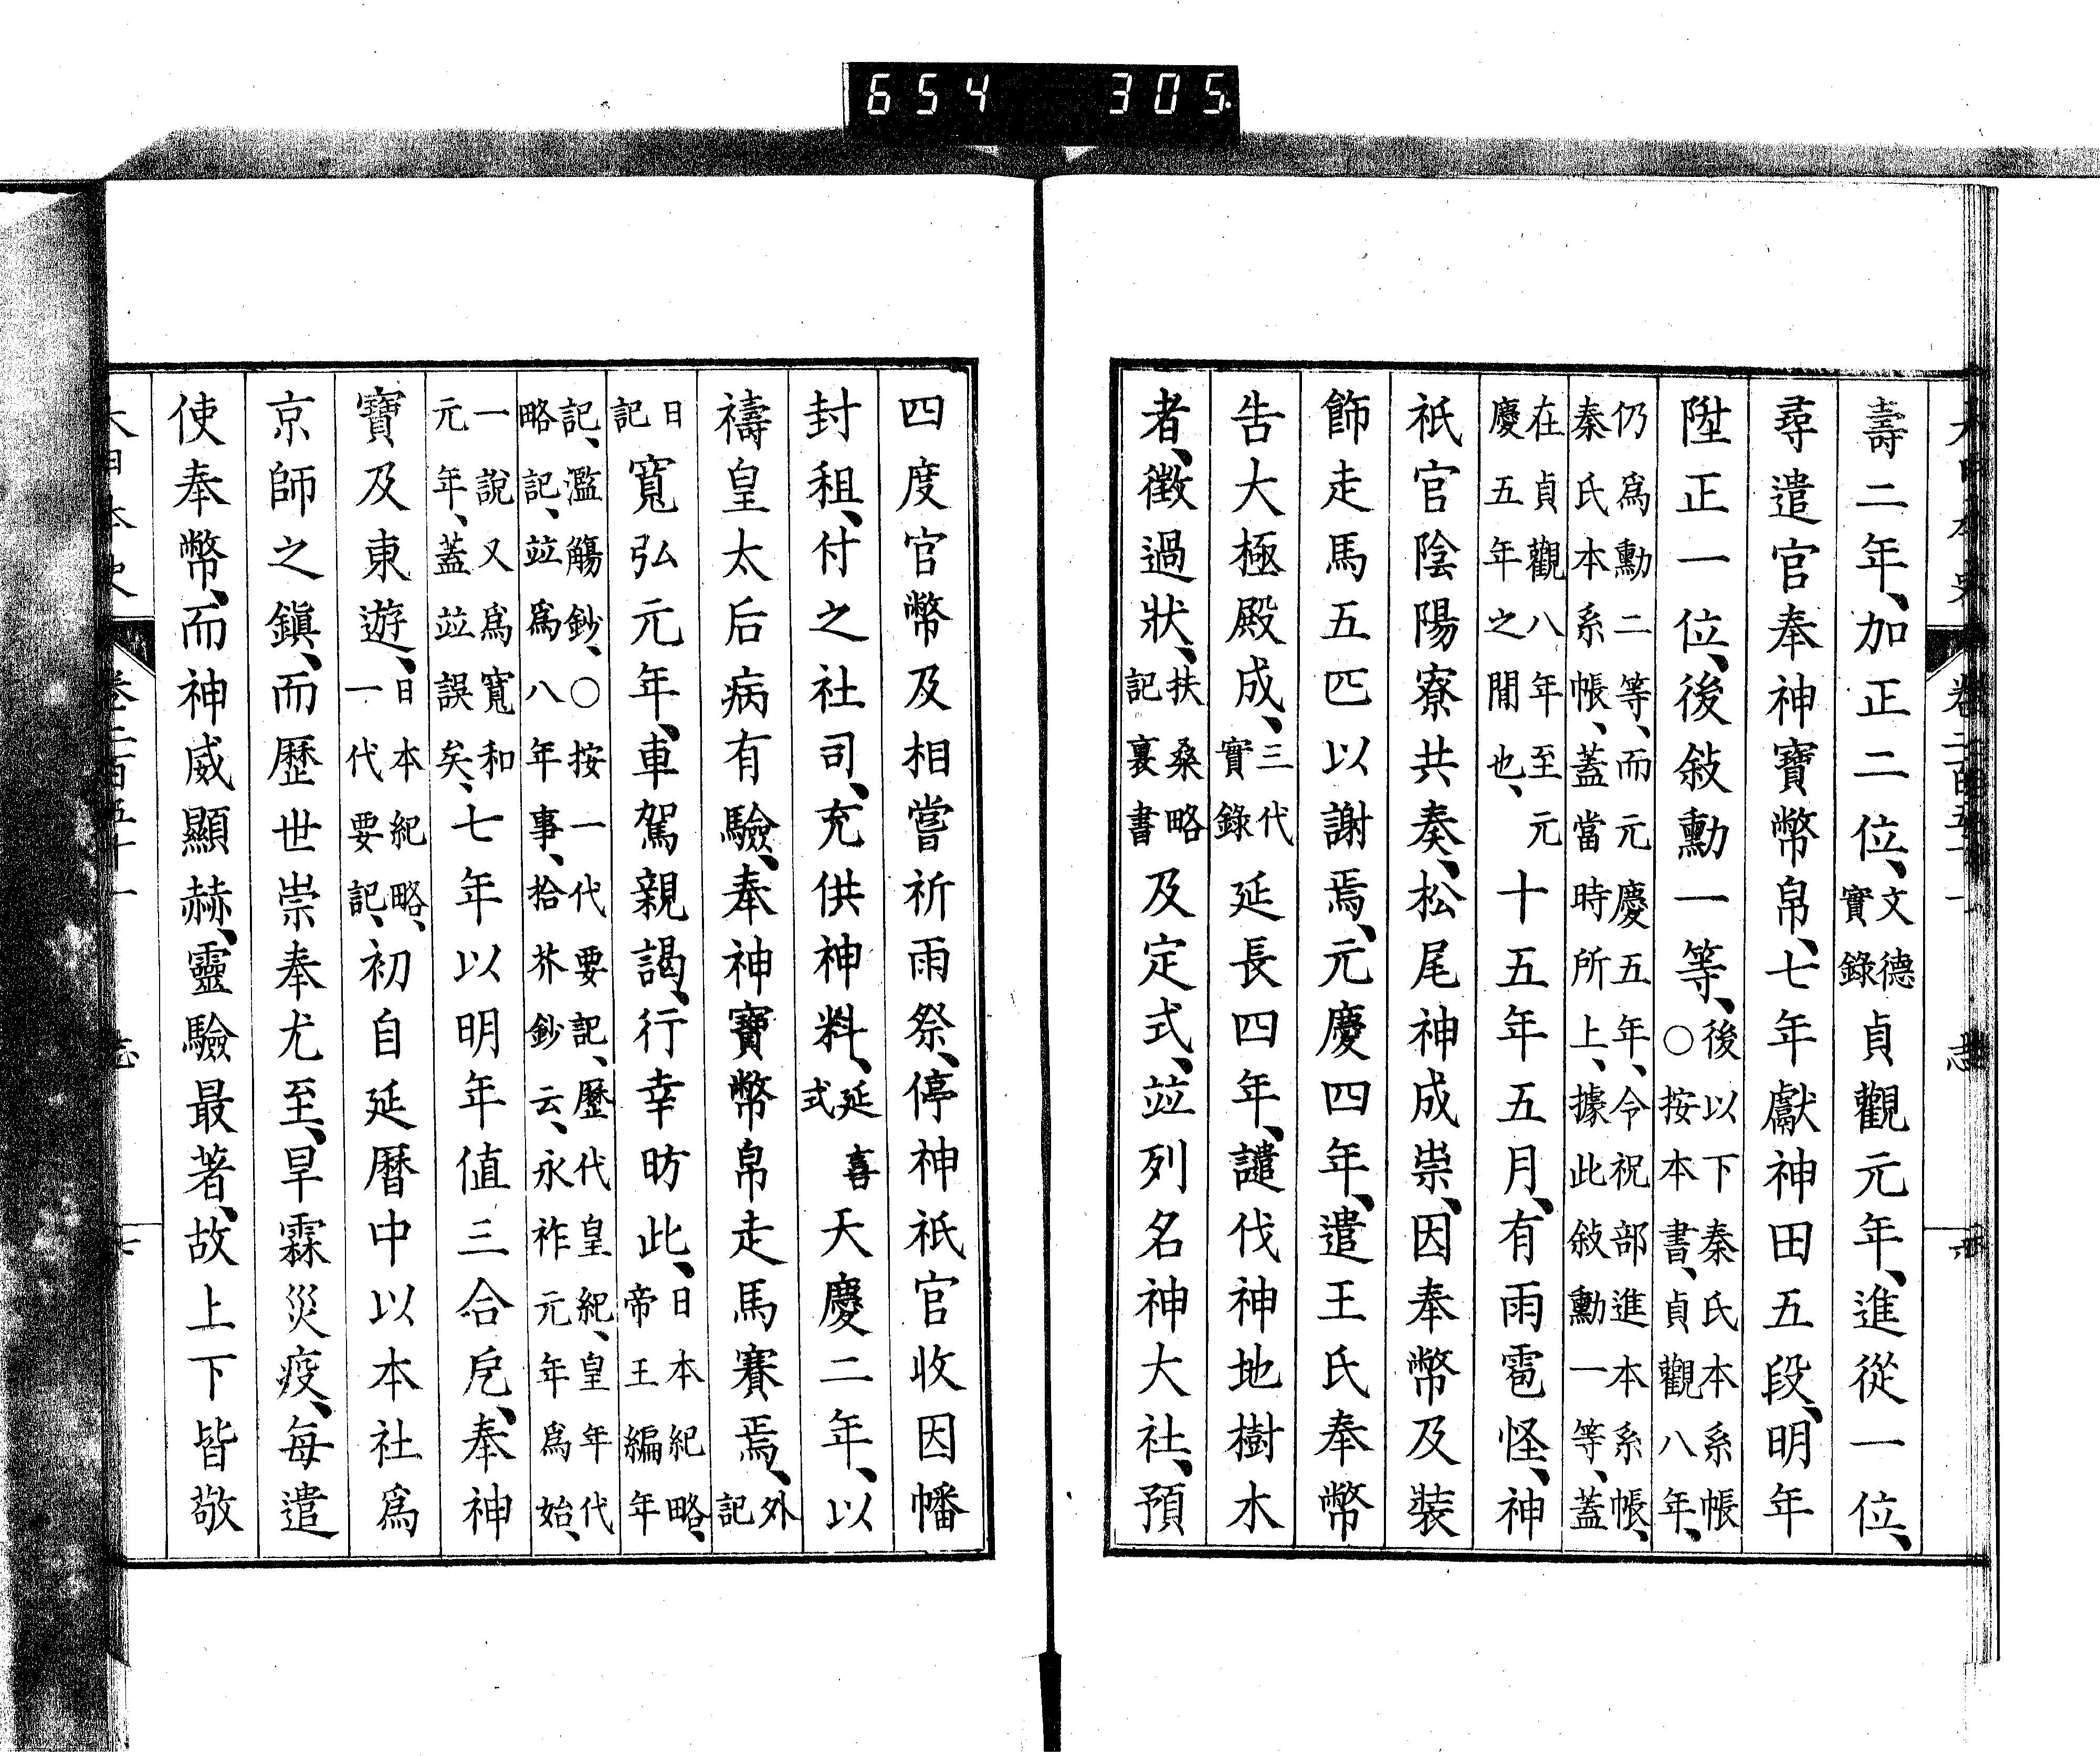 654 305
大日本史 卷二百五十一 志
壽二年、加正二位、文德實錄貞觀元年、進從一位、
尋遣官奉神寶幣帛、七年獻神田五段、明年
陞正一位、後敍勳一等、後以下秦氏本系帳○按本書、貞觀八年、
仍爲勳二等、而元慶五年、令祝部進本系帳、秦氏本系帳、蓋當時所上、據此敍勳一等、蓋
在貞觀八年至元慶五年之閒也、十五年五月、有雨雹怪、神
祇官陰陽寮共奏、松尾神成祟、因奉幣及裝
飾走馬五匹以謝焉、元慶四年、遣王氏奉幣
告大極殿成、三代實錄延長四年、譴伐神地樹木
者、徵過狀、扶桑略記裏書及定式、竝列名神大社、預
四度官幣及相嘗祈雨祭、停神祇官收因幡
封租、付之社司、充供神料、延喜式天慶二年、以
禱皇太后病有驗、奉神寶幣帛走馬賽焉、外記
日記寬弘元年、車駕親謁、行幸昉此、日本紀略、帝王編年
記、濫觴鈔、○按一代要記、歷代皇紀、皇年代略記、竝爲八年事、拾芥鈔云、永祚元年爲始、
一說又爲寬和元年、蓋竝誤矣、七年以明年値三合戹、奉神
寶及東遊、日本紀略、一代要記、初自延曆中以本社爲
京師之鎭、而歷世崇奉尤至、旱霖災疫、每遣
使奉幣、而神威顯赫、靈驗最著、故上下皆敬
大日本史 卷二百五十一 志 七